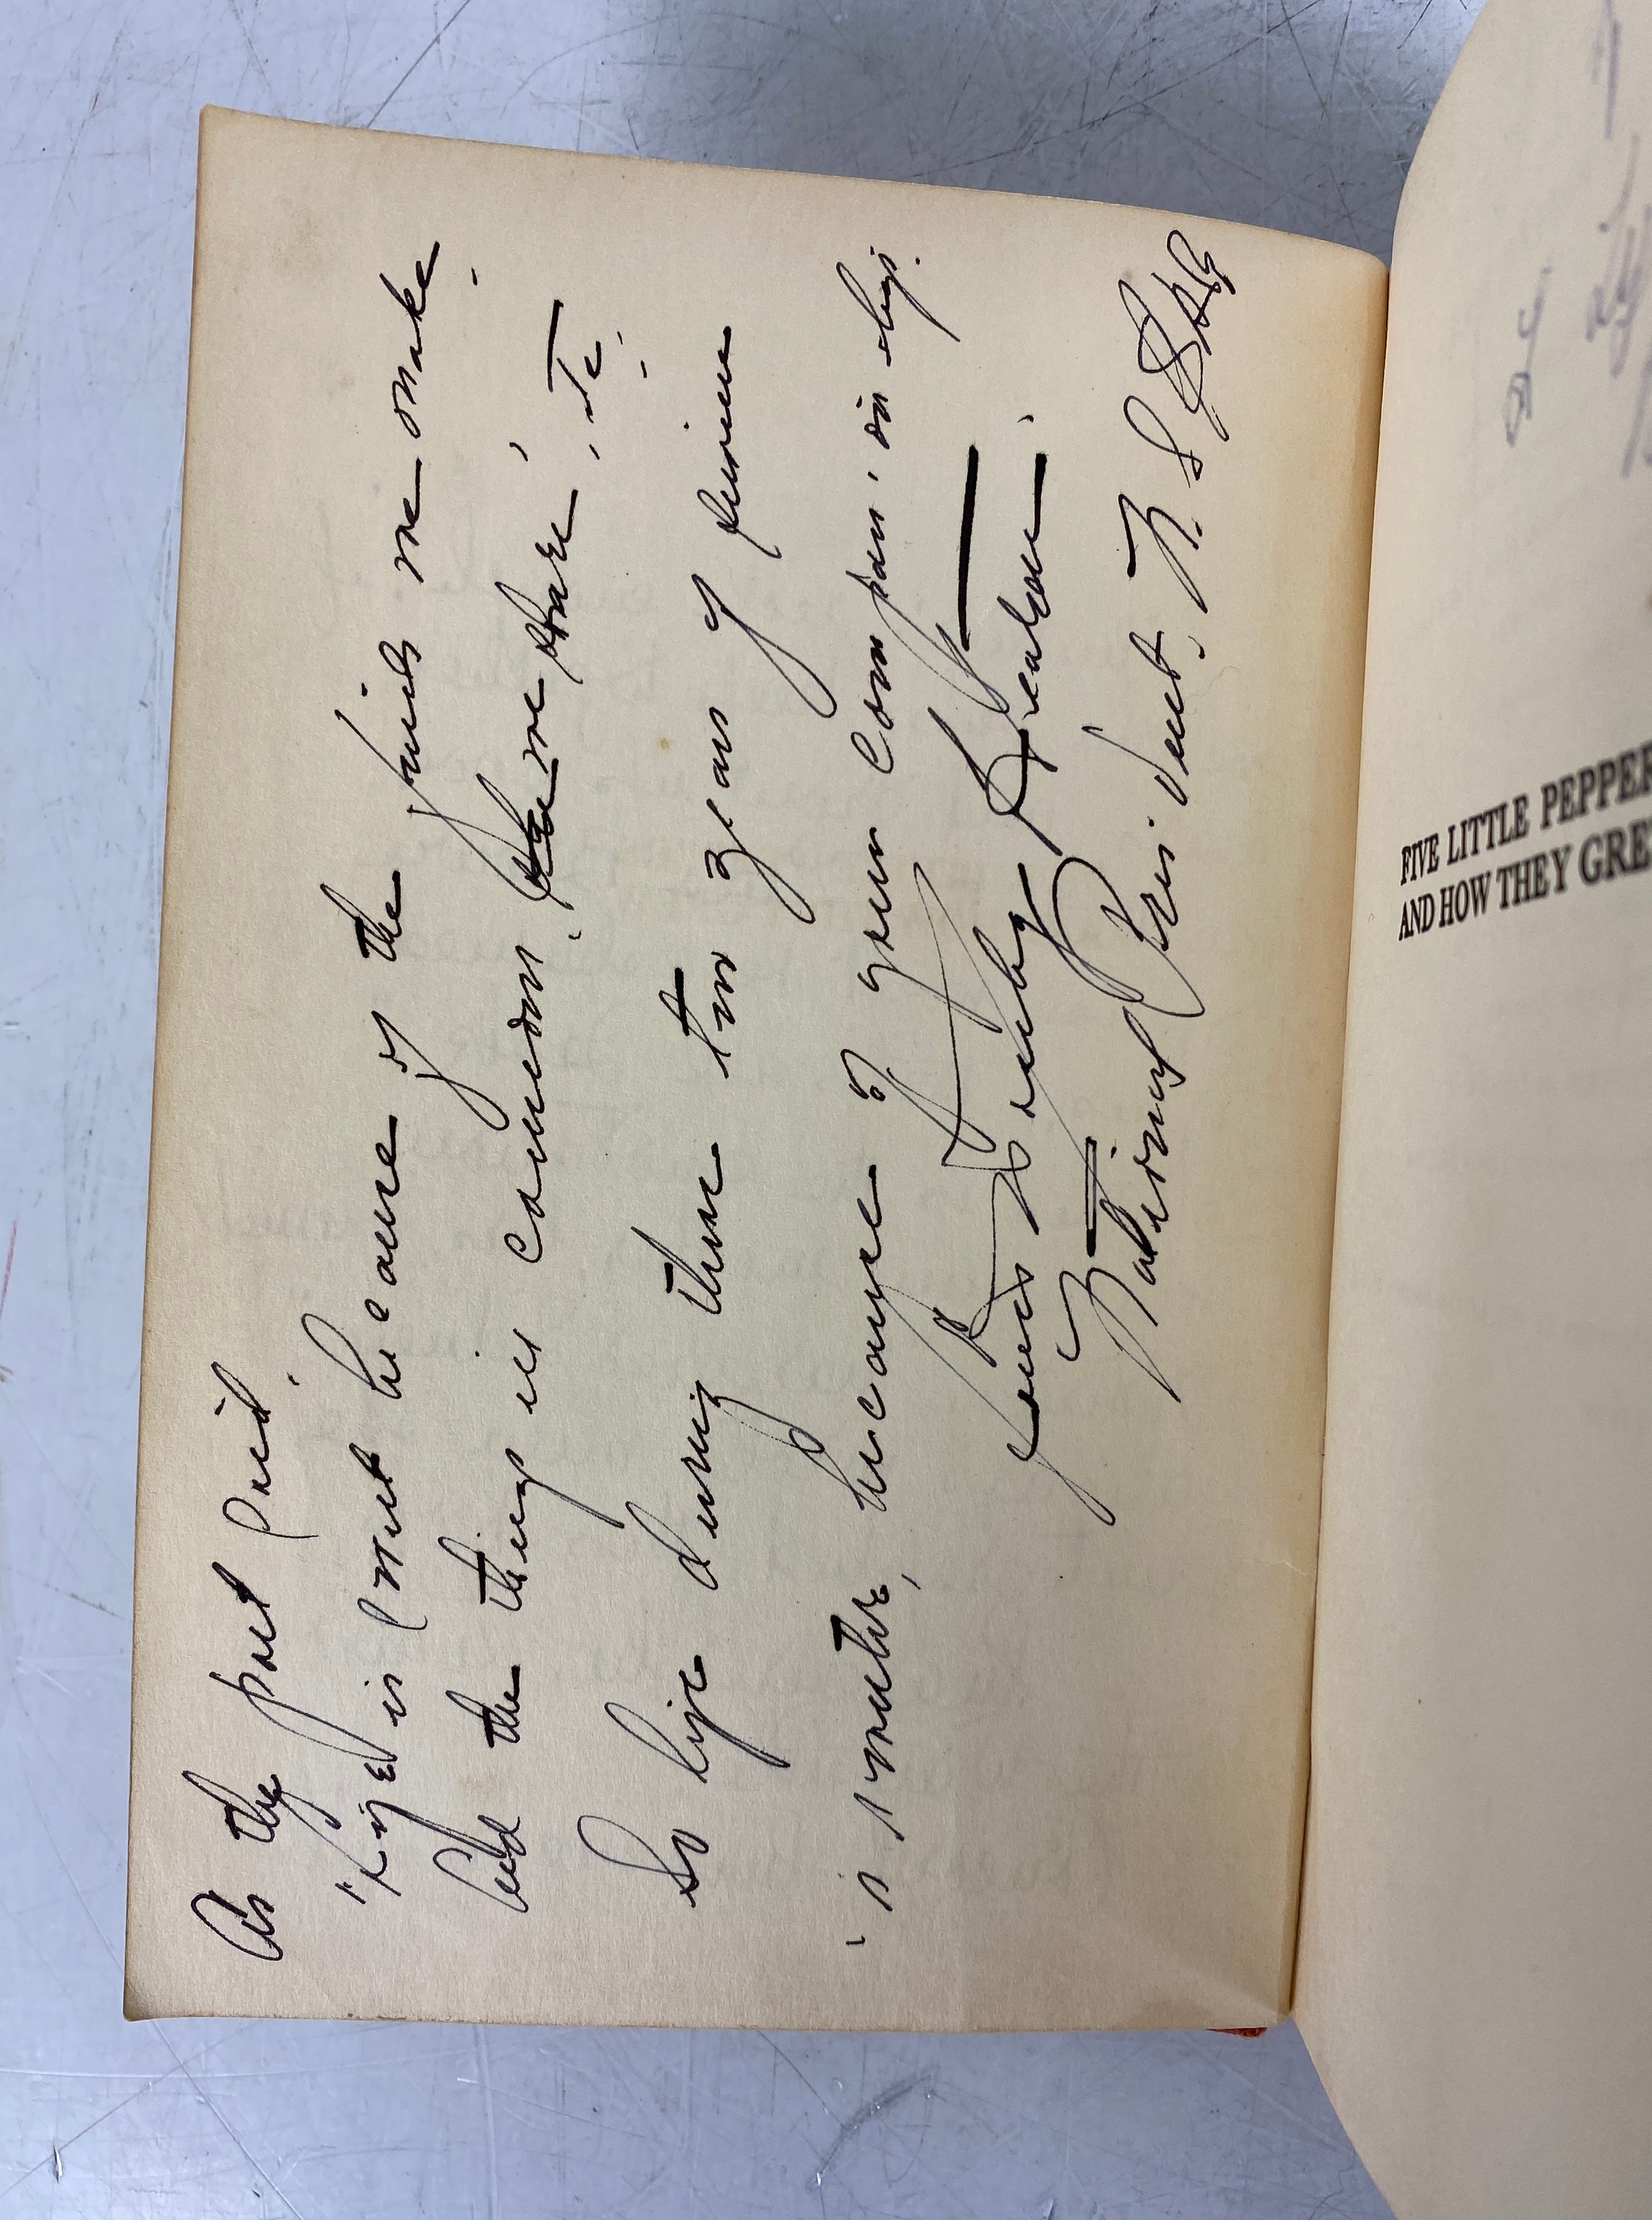 As the poet said,
"Life is sweet because of the friends we make
And the things in common we share", etc.
So life during these two years of service
is sweeter, because of your companionship.
Louis
National President,
FIVE LITTLE PEPPER
AND HOW THEY GRE